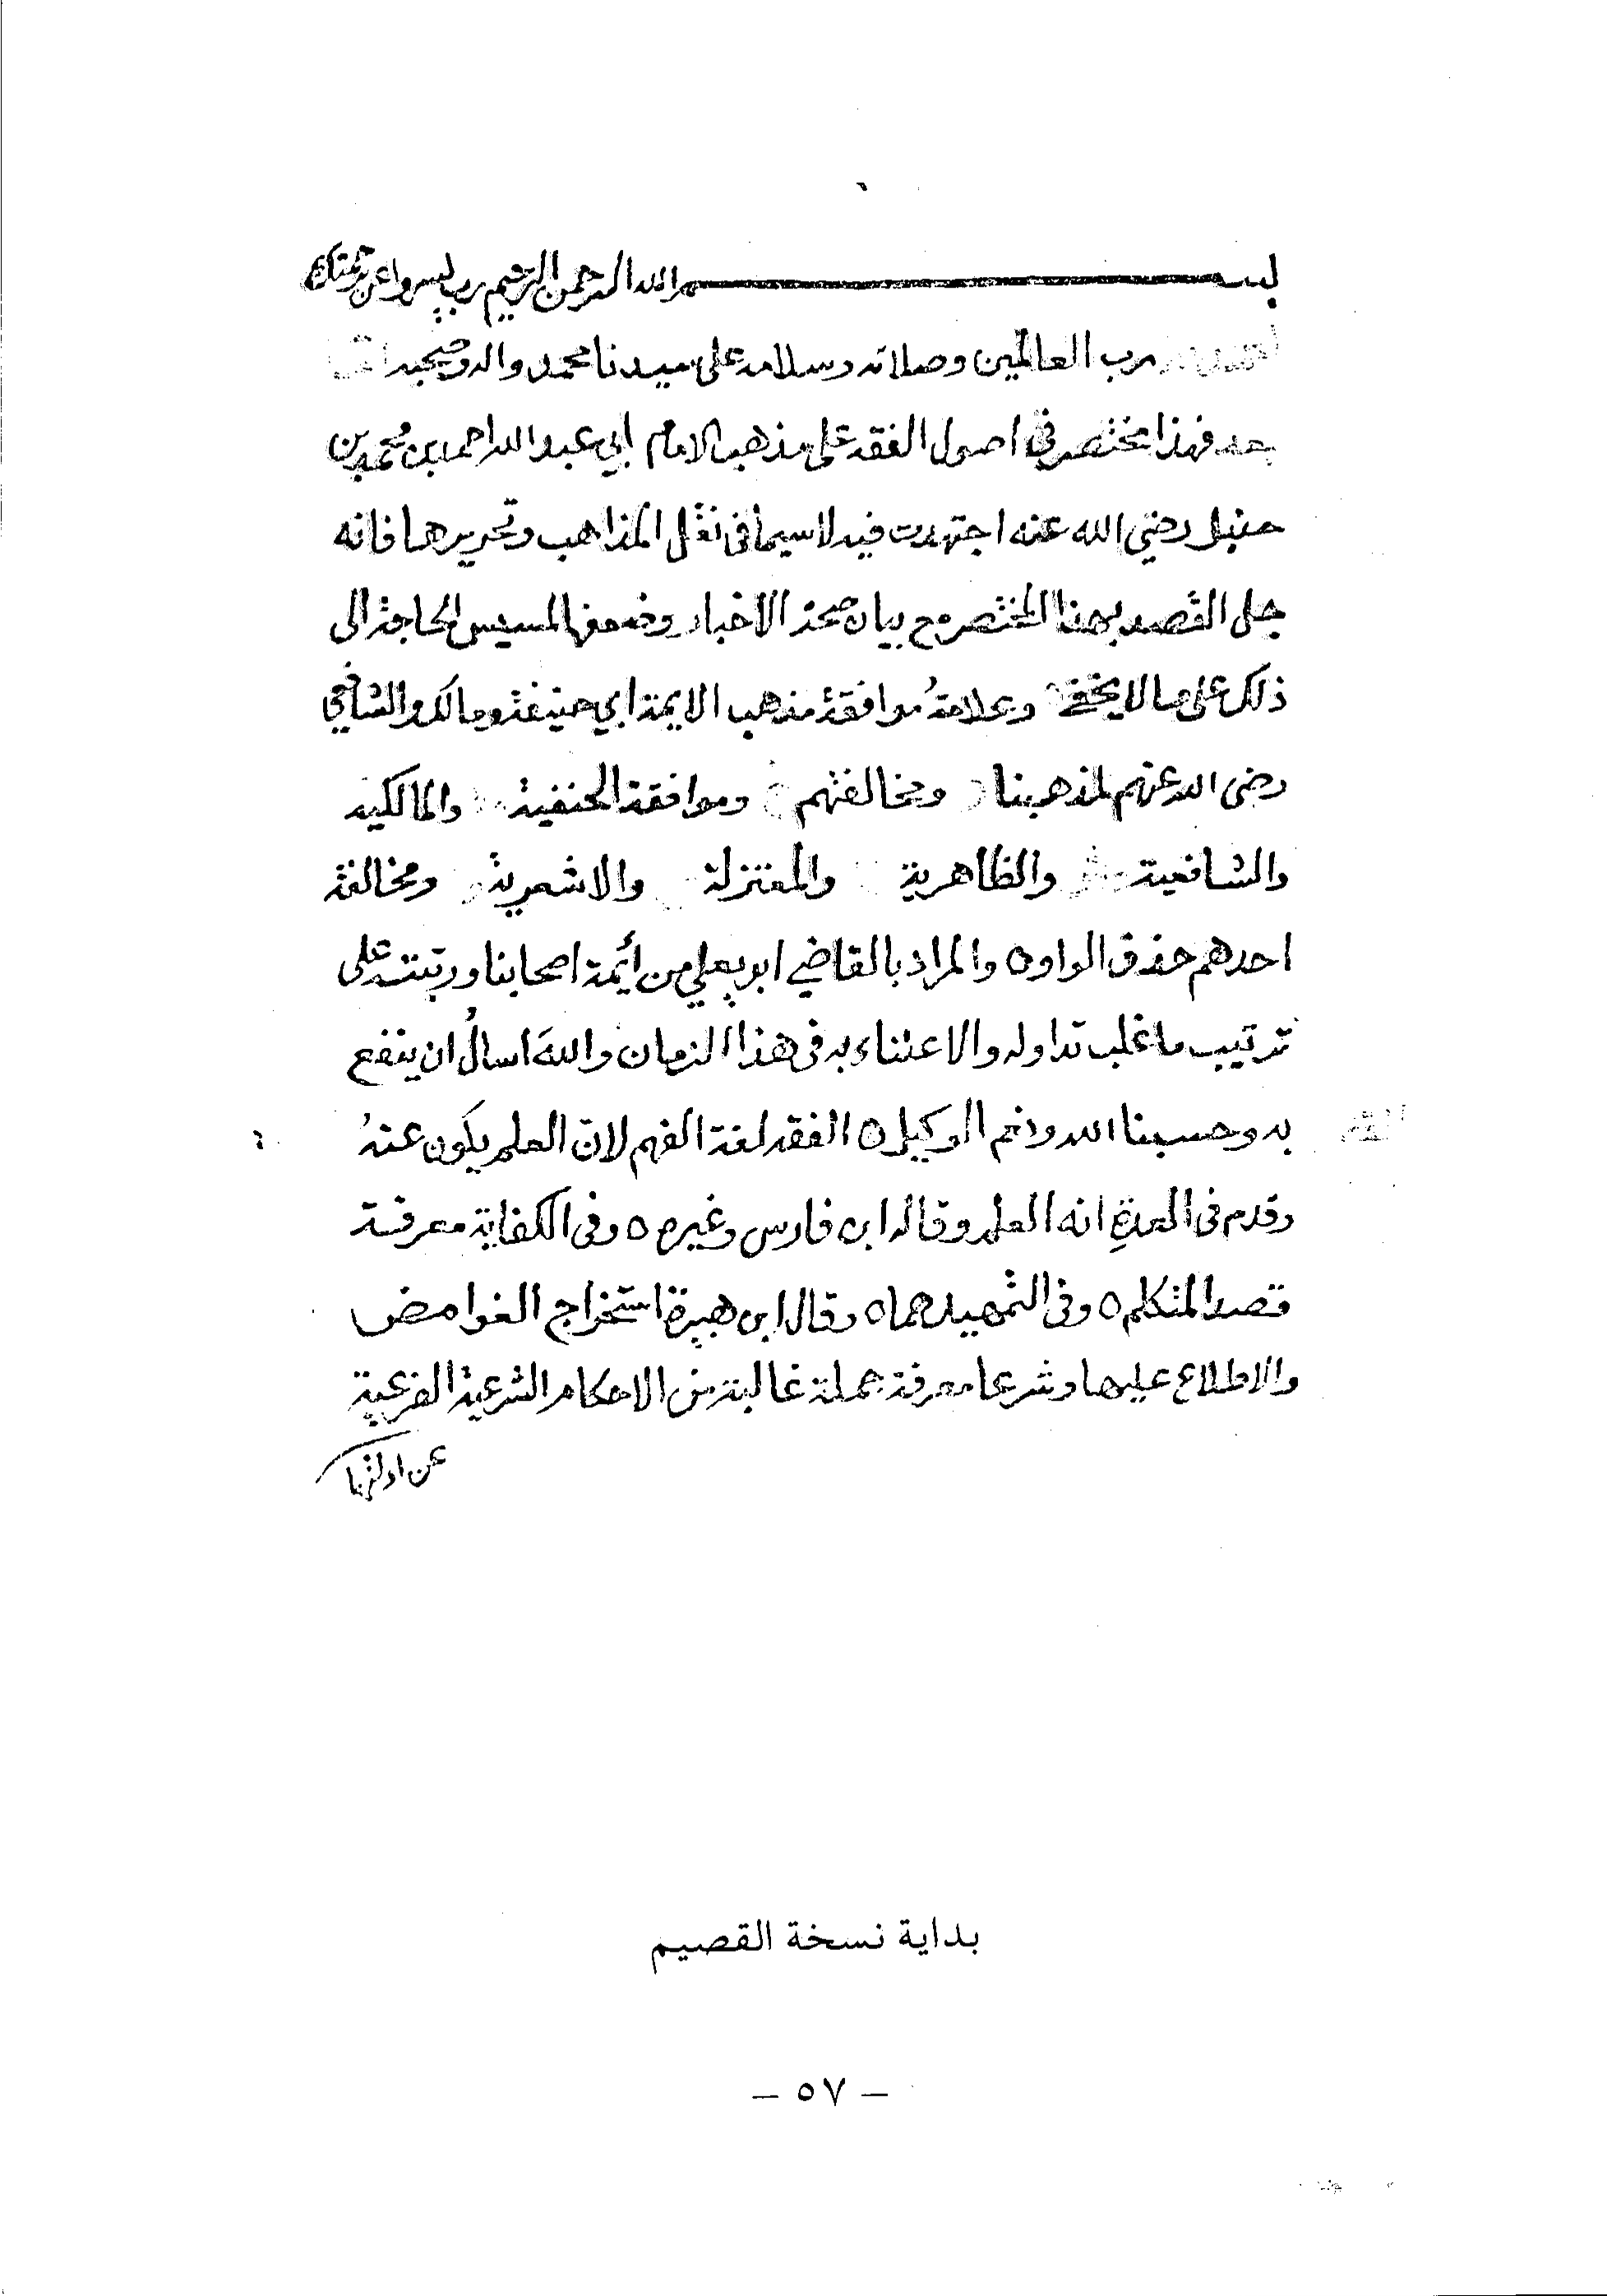 بسم الله الرحمن الرحيم رب يسر واعن
رب العالمين وصلاته وسلامه على سيدنا محمد واله وصحبه
بعد فهذا مختصر في اصول الفقه على مذهب الامام ابي عبد الله احمد بن محمد بن
حنبل رضي الله عنه اجتهدت فيه لا سيما فى نقل المذاهب وتحريرها فانه
جل القصد بهذا المختصر مع بيان صحة الاخبار وضعفها لمسيس الحاجة الى
ذلك على ما لا يخفى وعلامةُ موافقة مذهب الايمة ابي حنيفة ومالك والشافعي
رضى الله عنهم لمذهبنا ومخالفتهم وموافقة الحنفية والمالكية
والشافعية والظاهرية والمعتزلة والاشعرية ومخالفة
احدهم حذف الواو ٥ والمراد بالقاضي ابو يعلي من أيمة اصحابنا ورتبته على
ترتيب ما غلب تداوله والاعتناء به فى هذا الزمان واللهَ اسالُ ان ينفع
به وحسبنا الله ونعم الوكيل ٥ الفقه لغة الفهم لان العلم يكون عنهُ
وقدم فى العدةِ انه العلم وقاله ابن فارس وغيره ٥ وفى الكفاية معرفة
قصد المتكلم ٥ وفى التمهيد هما ٥ وقال ابن هبيرة استخراج الغوامض
والاطلاع عليها وشرعا معرفة جملة غالبة من الاحكام الشرعية الفرعية
عن ادلتها
بداية نسخة القصيم
— ٥٧ —